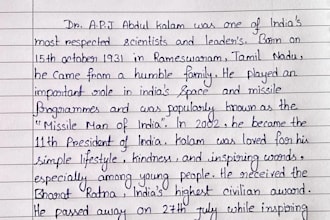 Dr. A.P.J Abdul Kalam was one of India's
most respected scientists and leader's. Born on
15th october 1931 in Rameswaram, Tamil Nadu,
he came from a humble family. He played an
important role in India's space and missile
Programmes and was popularly known as the
"Missile Man of India". In 2002, he became the
11th President of India. Kalam was loved for his
simple lifestyle, kindness, and inspiring words,
especially among young people. He received the
Bharat Ratna, India's highest civilian award.
He passed away on 27th july while inspiring